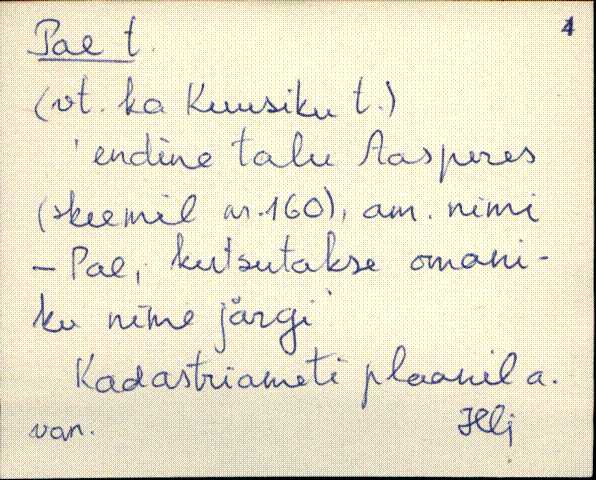 4
Pae t.
(vt. ka Kuusiku t.)
'endine talu Aasperes
(skeemil nr.160), am. nimi
– Pae, kutsutakse omani-
ku nime järgi'
Kadastriameti plaanil a.
van. Hlj